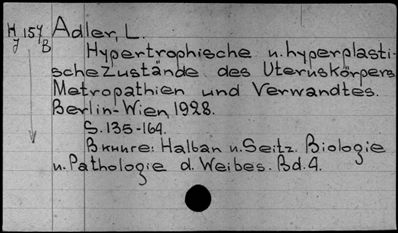 H 157 Adler, L.
J B
Hypertrophische u. hyperplasti-
sche Zustände des Uteruskörpers
Metropathien und Verwandtes.
Berlin-Wien 1928.
S. 135-164.
В книге: Halban u. Seitz. Biologie
u. Pathologie d. Weibes. Bd. 4.